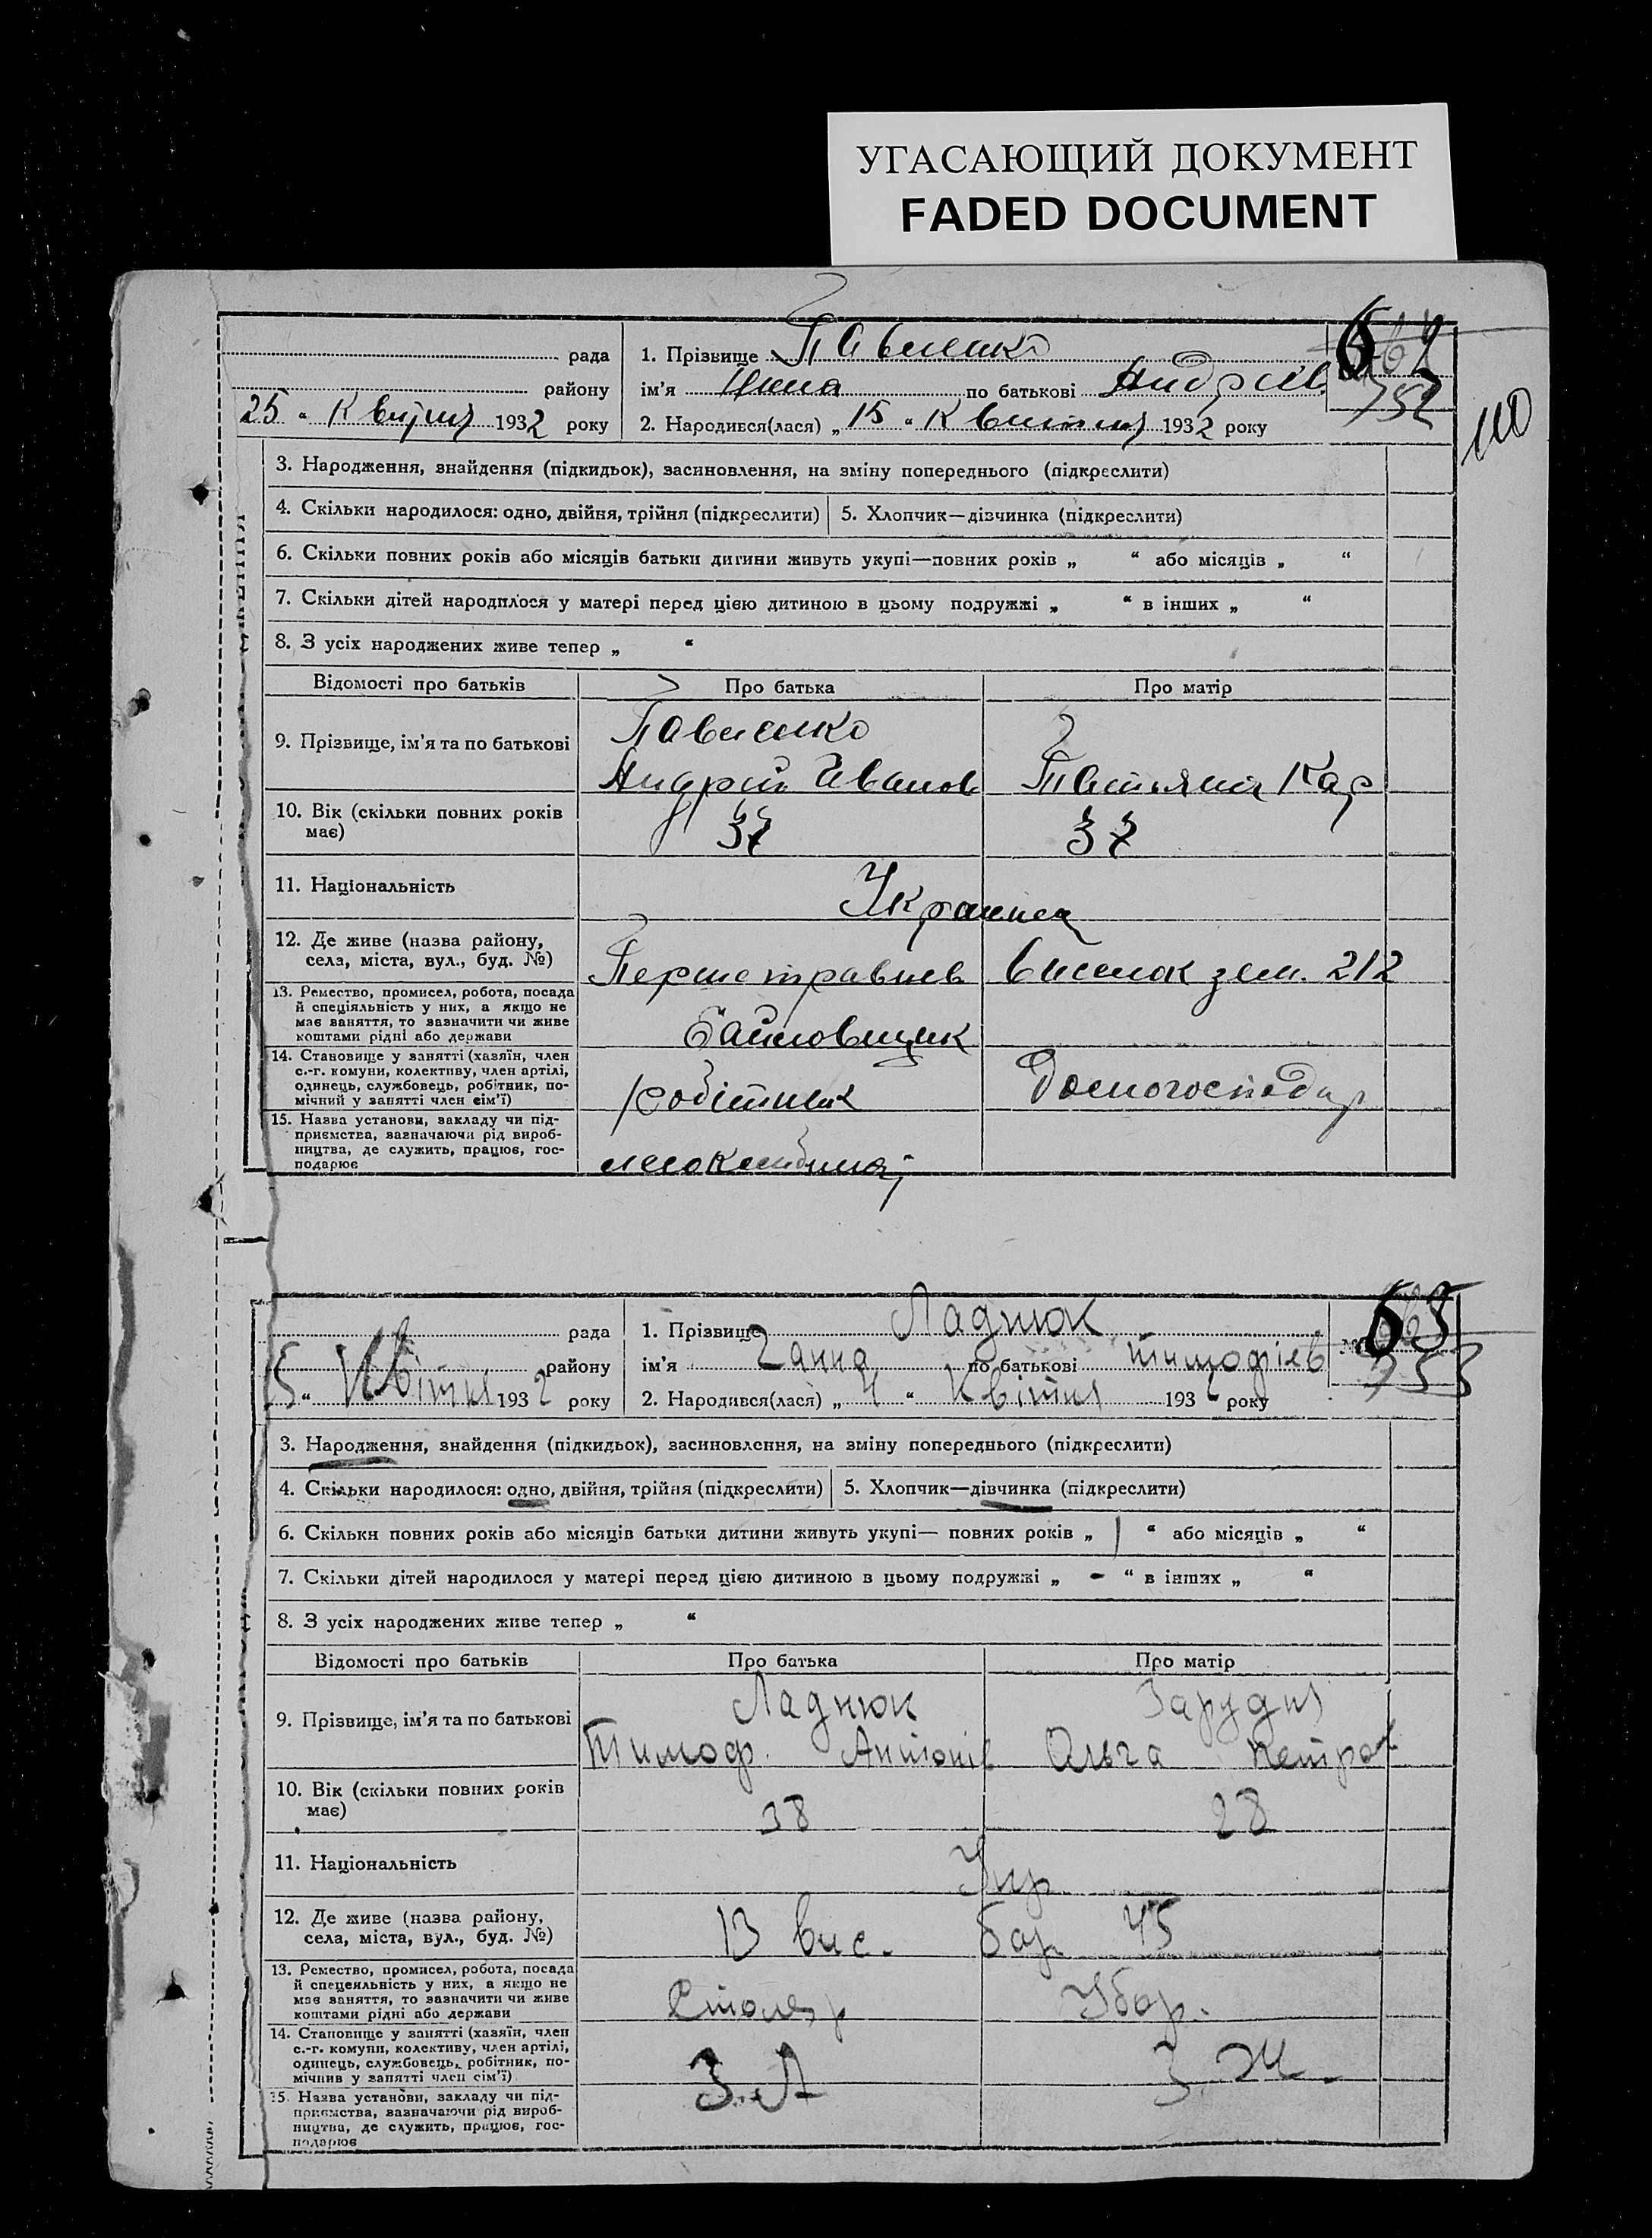 УГАСАЮЩИЙ ДОКУМЕНТ
FADED DOCUMENT
рада
району
25 " Квітня 1932 року
1. Прізвище Павленко
ім'я по батькові Андріїв.
2. Народився(лася) „ 15 " Квітня 1932 року
752
110
3. Народження, знайдення (підкидьок), засиновлення, на зміну попереднього (підкреслити)
4. Скільки народилося: одно, двійня, трійня (підкреслити) 5. Хлопчик—дівчинка (підкреслити)
6. Скільки повних років або місяців батьки дитини живуть укупі—повних років „ “ або місяців „ “
7. Скільки дітей народилося у матері перед цією дитиною в цьому подружжі „ “ в інших „ “
8. З усіх народжених живе тепер „ “
Відомості про батьків Про батька Про матір
9. Прізвище, ім'я та по батькові Павленко
Андрій Іванов Татьяна Кар
10. Вік (скільки повних років має) 37 37
11. Національність Україна
12. Де живе (назва району, села, міста, вул., буд. №) Першотравнев виселок зем. 212
13. Ремество, промисел, робота, посада й спеціяльність у них, а якщо не має заняття, то зазначити чи живе коштами рідні або держави
14. Становище у занятті (хазяїн, член с.-г. комуни, колективу, член артілі, одинець, службовець, робітник, помічний у занятті член сім'ї) робітник Домогосподар
15. Назва установи, закладу чи підприємства, зазначаючи рід виробництва, де служить, працює, господарює
рада
району
5 " Квітня 1932 року
1. Прізвище Ладнюк
ім'я Ганна по батькові Тимофіїв
2. Народився(лася) „ 4 " Квітня 1932 року
753
3. Народження, знайдення (підкидьок), засиновлення, на зміну попереднього (підкреслити)
4. Скільки народилося: одно, двійня, трійня (підкреслити) 5. Хлопчик—дівчинка (підкреслити)
6. Скільки повних років або місяців батьки дитини живуть укупі— повних років „ 1 “ або місяців „ “
7. Скільки дітей народилося у матері перед цією дитиною в цьому подружжі „ - “ в інших „ “
8. З усіх народжених живе тепер „ “
Відомості про батьків Про батька Про матір
9. Прізвище, ім'я та по батькові Ладнюк Зарудня
Тимоф. Антонів Ольга Петров
10. Вік (скільки повних років має) 38 28
11. Національність Укр.
12. Де живе (назва району, села, міста, вул., буд. №) 13 вис. бар 45
13. Ремество, промисел, робота, посада й спецеяльність у них, а якщо не має заняття, то зазначити чи живе коштами рідні або держави Столяр Убор.
14. Становище у занятті (хазяїн, член с.-г. комуни, колективу, член артілі, одинець, службовець, робітник, помічнив у занятті член сім'ї)
15. Назва установи, закладу чи підприємства, зазначаючи рід виробництва, де служить, працює, господарює